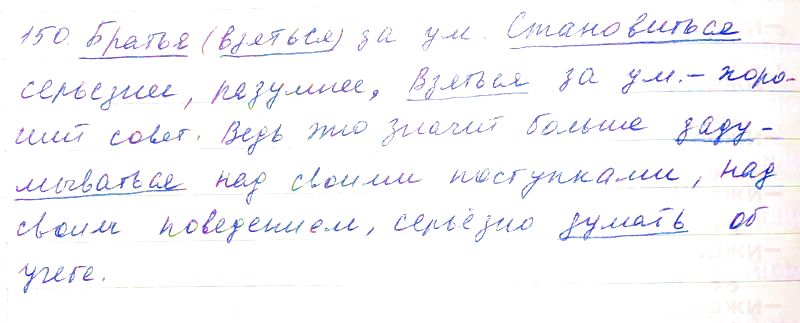 150. Браться (взяться) за ум. Становиться
серьезнее, разумнее, Взяться за ум. – хоро-
ший совет. Ведь это значит больше заду-
мываться над своими поступками, над
своим поведением, серьёзно думать об
учебе.